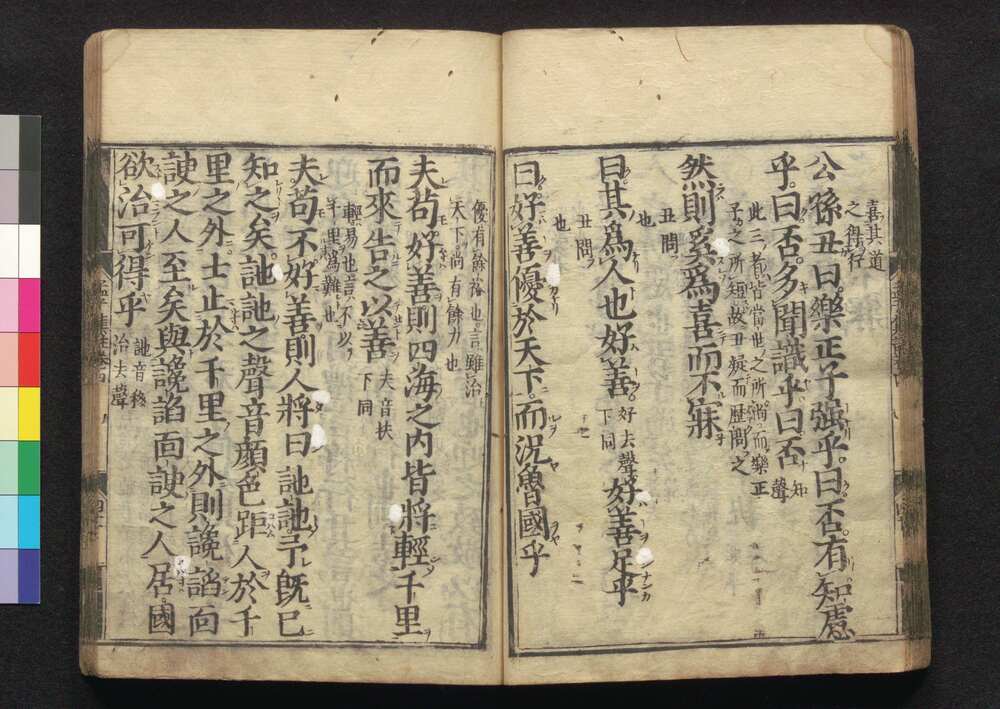 喜其道
之得行
公孫丑曰樂正子強乎曰否有知慮
乎曰否多聞識乎曰否
知
聲
此三者皆當世之所尚而樂正
子之所短故丑疑而歷問之
然則奚爲喜而不寐
丑問
也
曰其爲人也好善
好去聲
下同
好善足乎
丑問
也
曰好善優於天下而況魯國乎
優有餘裕也言雖治
天下尚有餘力也
夫苟好善則四海之内皆將輕千里
而來告之以善
夫音扶
下同
輕易也言不以
千里爲難也
夫苟不好善則人將曰訑訑予既已
知之矣訑訑之聲音顔色距人於千
里之外士止於千里之外則讒諂面
諛之人至矣與讒諂面諛之人居國
欲治可得乎
訑音移
治去聲